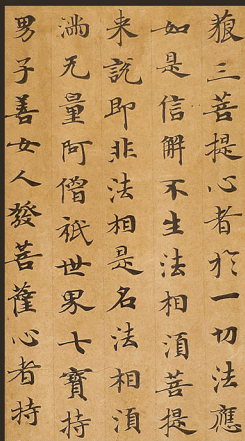 三菩提心者於一切法應
如是信解不生法相湏菩提
来說即非法相是名法相湏
滿无量阿僧祇世界七寶持
男子善女人發菩薩心者持